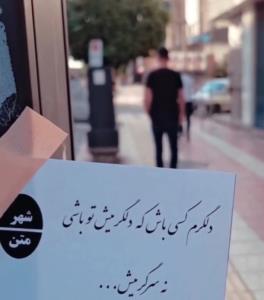 شهر
متن
دلگرم کسی باش که دلگرمیش تو باشی
نه سرگرمیش...